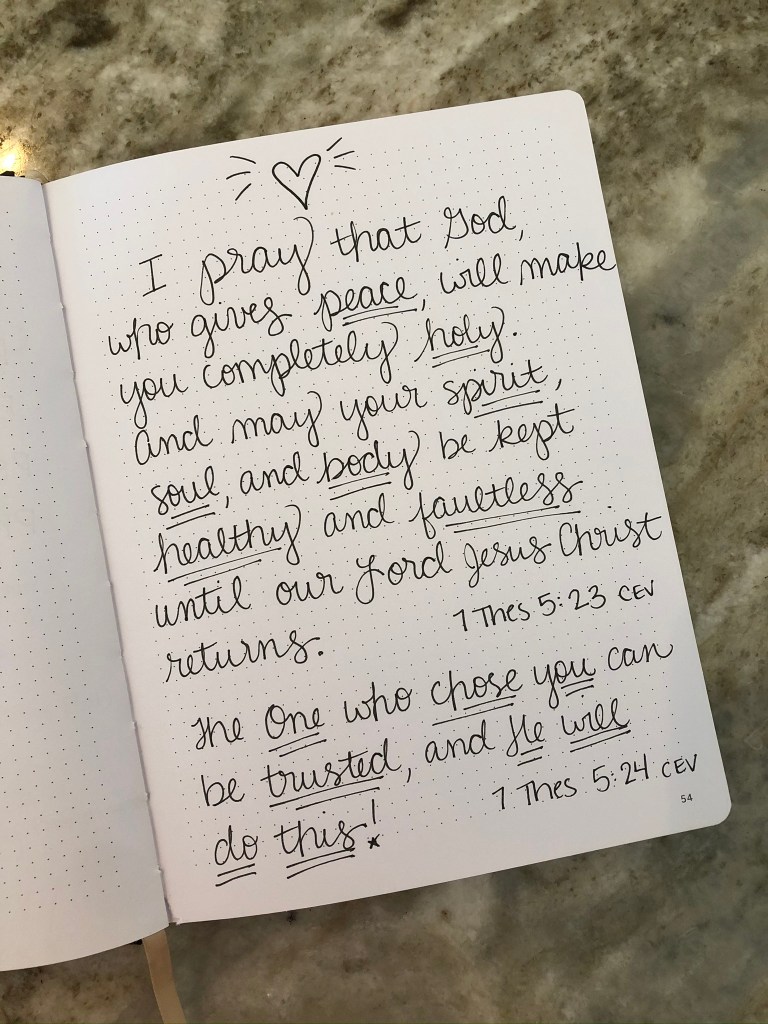 I pray that God,
who gives peace, will make
you completely holy.
And may your spirit,
soul, and body be kept
healthy and faultless
until our Lord Jesus Christ
returns.
1 Thes 5:23 CEV
The One who chose you can
be trusted, and He will
do this!
1 Thes 5:24 CEV
54